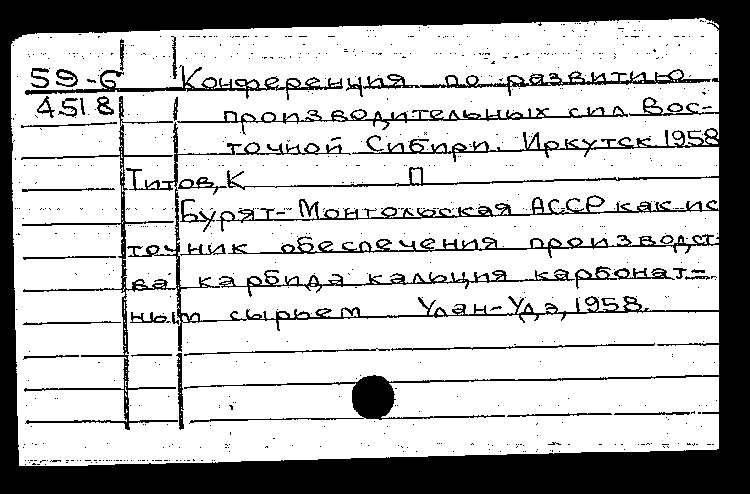 59-6 Конференция по развитию
4518 производительных сил Вос-
точной Сибири. Иркутск 1958
Титов, К П
Бурят-Монгольская АССР как ис
точник обеспечения производст-
ва карбида кальция карбонат-
ным сырьем Улан-Удэ, 1958.